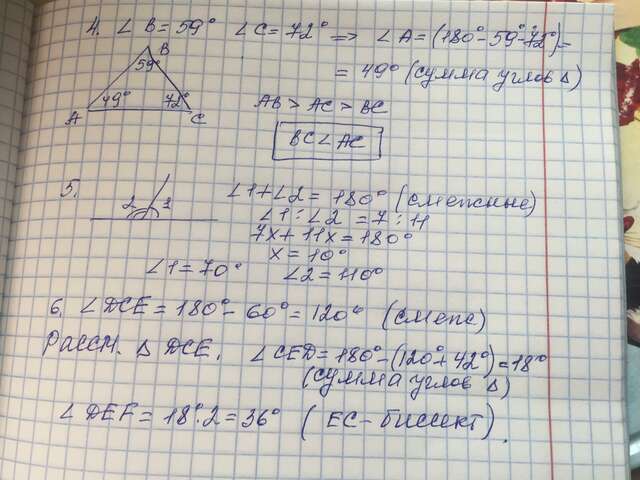 4. ∠ B = 59° ∠ C = 72° => ∠ A = (180° - 59° - 72°) =
= 49° (сумма углов Δ)
B
59°
49°
72°
A
C
AB > AC > BC
BC < AC
5.
2
1
∠1 + ∠2 = 180° (смежные)
∠1 : ∠2 = 7 : 11
7x + 11x = 180°
x = 10°
∠1 = 70° ∠2 = 110°
6. ∠ DCE = 180° - 60° = 120° (смеж)
Рассм. Δ DCE. ∠ CED = 180° - (120° + 42°) = 18°
(сумма углов Δ)
∠ DEF = 18°. 2 = 36° (EC - биссект).